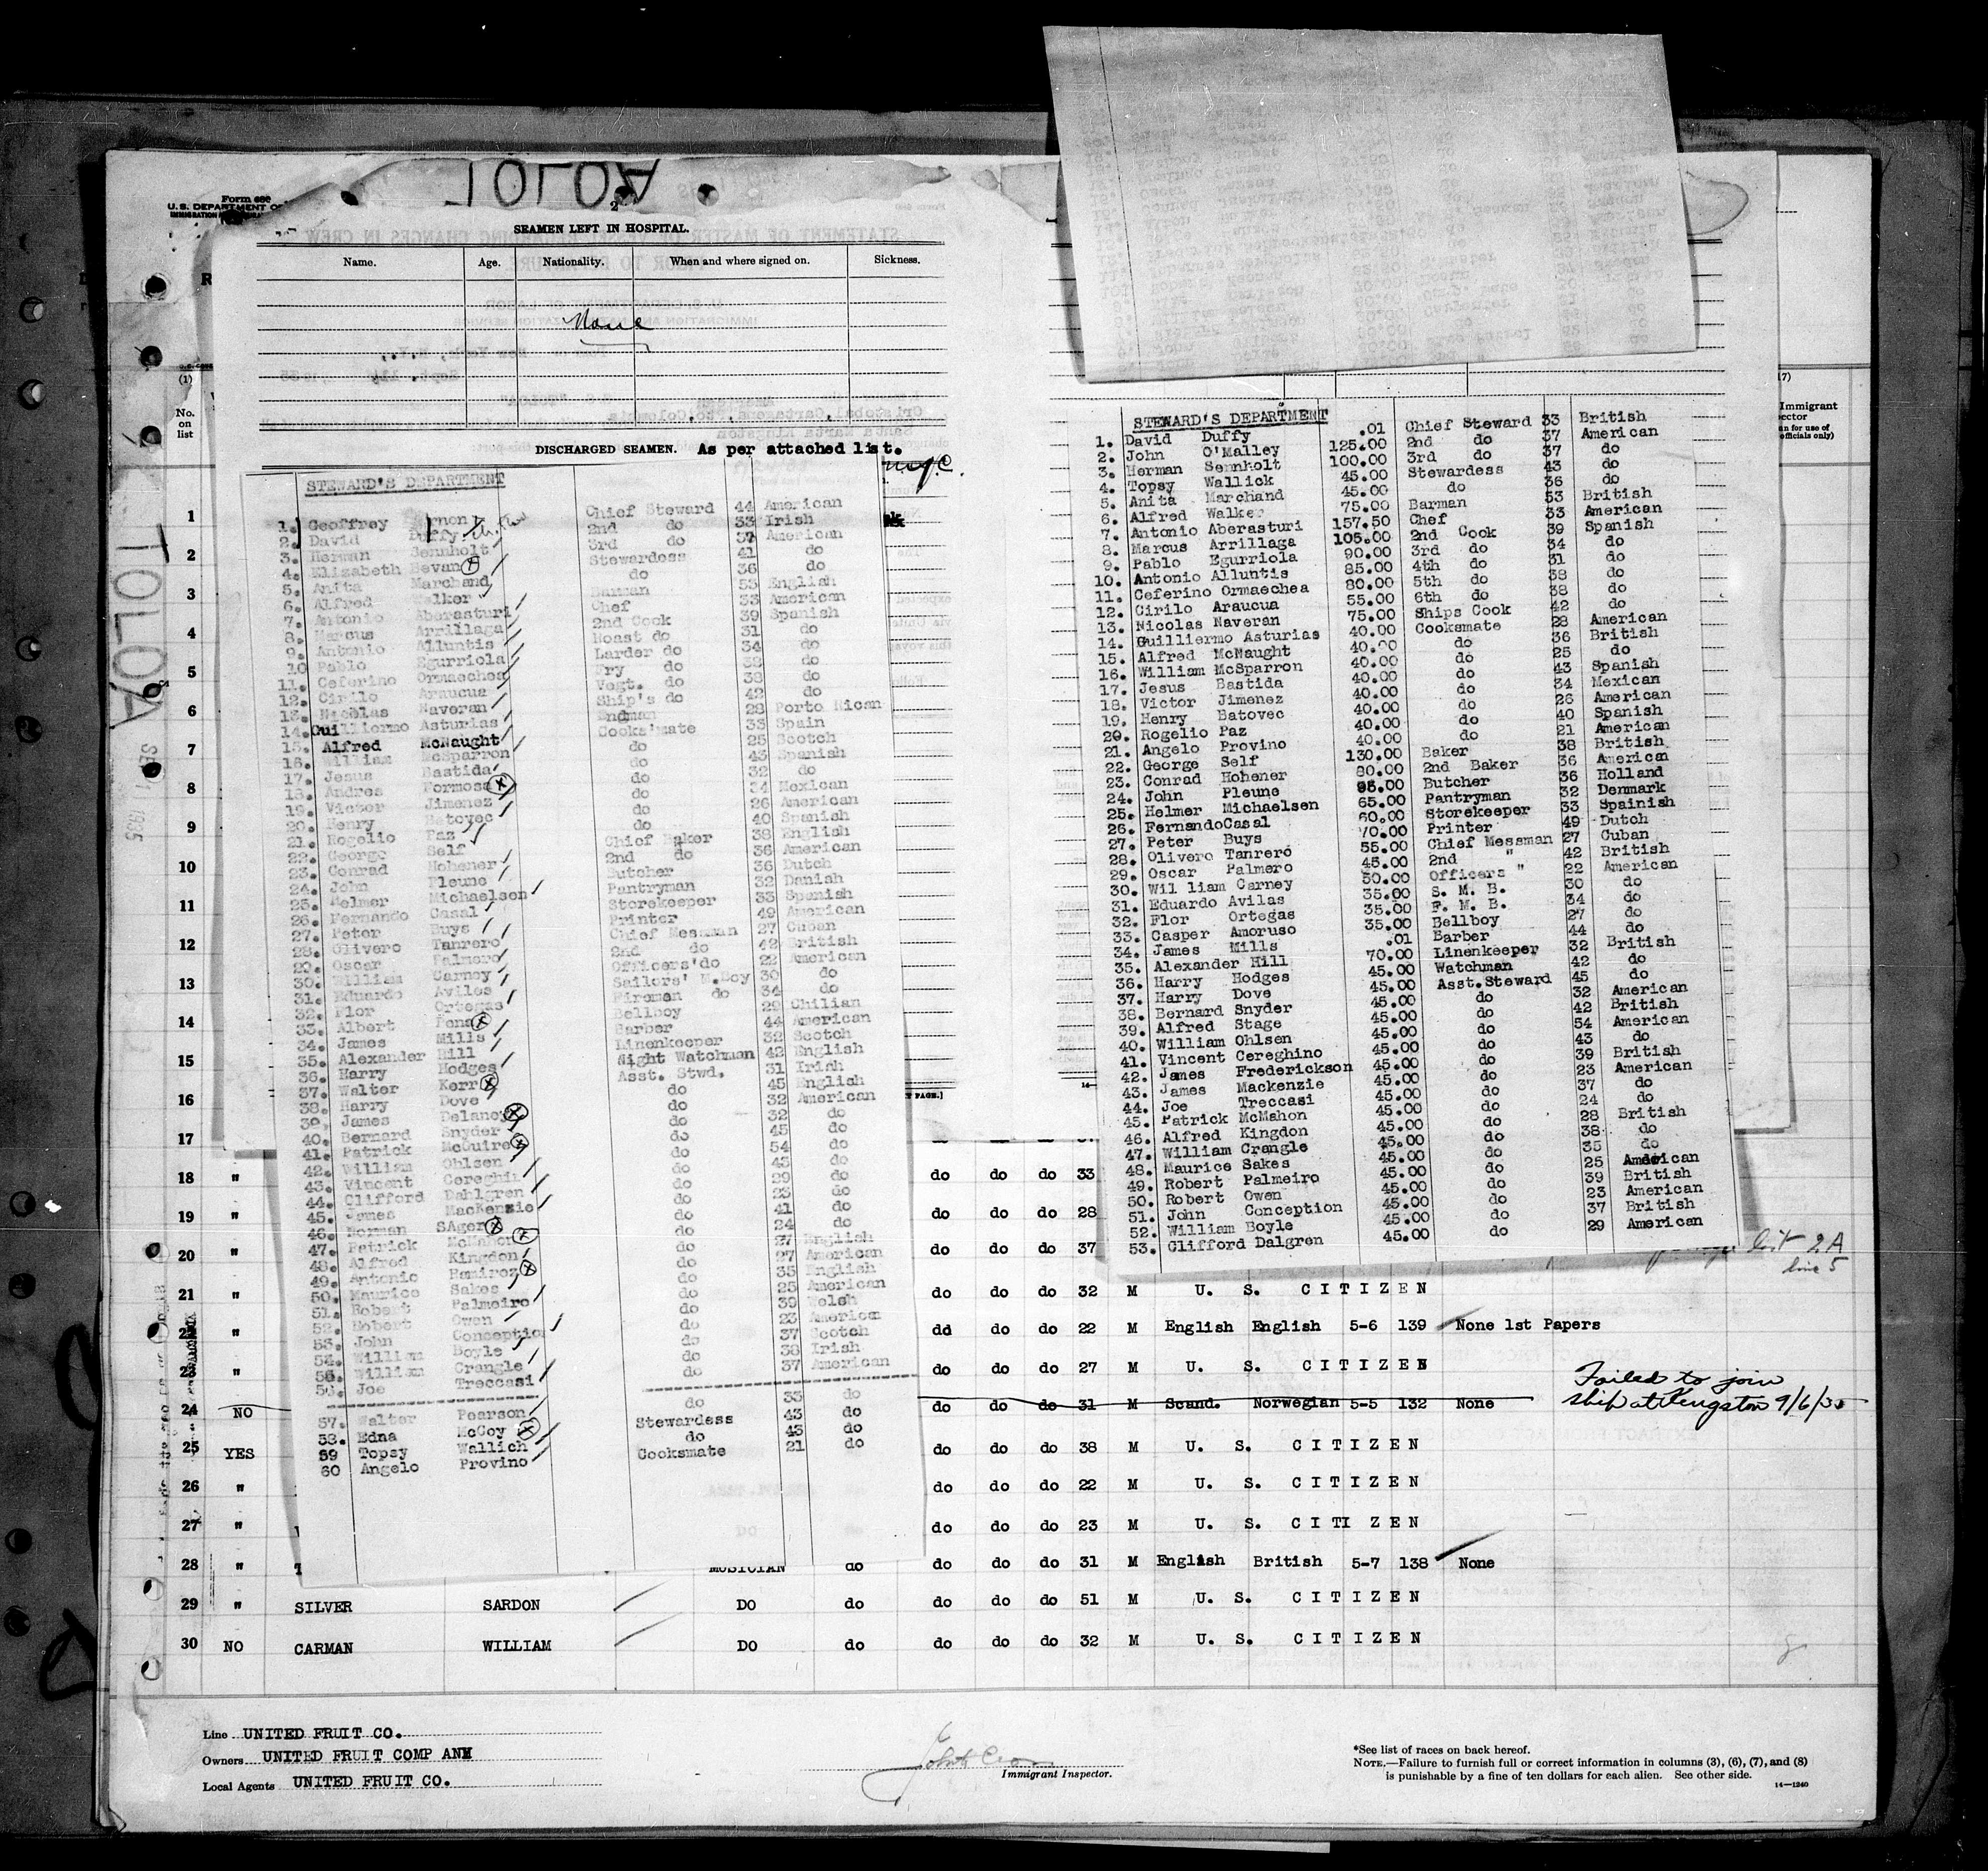 TOLOA
Form 680
U.S. DEPARTMENT OF
2
SEAMEN LEFT IN HOSPITAL.
Name. Age. Nationality. When and where signed on. Sickness.
None
DISCHARGED SEAMEN. As per attached list.
STEWARD'S DEPARTMENT
1. Geoffrey Vernon Chief Steward 44 American
2. David Duffy 2nd do 33 Irish
3. Herman Sennholt 3rd do 37 American
4. Elizabeth Bevan Stewardess 41 do
5. Anita Marchand do 36 do
6. Alfred Walker Barman 53 English
7. Antonio Aberasturi Chef 33 American
8. Marcus Arrillaga 2nd Cook 39 Spanish
9. Antonio Alluntis Roast do 31 do
10 Pablo Egurriola Larder do 34 do
11. Ceferino Ormaechea Fry do 38 do
12. Cirilo Araucua Vegt. do 38 do
13. Nicolas Naveran Ship's do 42 do
14. Guilliermo Asturias 2ndman 28 Porto Rican
15. Alfred McNaught Cooks'mate 33 Spain
16. William McSparron do 25 Scotch
17. Jesus Bastida do 43 Spanish
18. Andres Formosa do 32 do
19. Victor Jimenez do 34 Mexican
20. Henry Batovec do 26 American
21. Rogelio Paz do 40 Spanish
22. George Self Chief Baker 38 English
23. Conrad Hohener 2nd do 36 American
24. John Pleune Butcher 36 Dutch
25. Helmer Michaelsen Pantryman 32 Danish
26. Fernando Casal Storekeeper 33 Spanish
27. Peter Buys Printer 49 American
28. Olivero Tanrero Chief Messman 27 Cuban
29. Oscar Palmero 2nd do 42 British
30. William Carney Officers'do 22 American
31. Eduardo Aviles Sailors' M.Boy 30 do
32. Flor Ortegas Fireman do 34 do
33. Albert Pons Bellboy 29 Chilian
34. James Mills Barber 44 American
35. Alexander Hill Linenkeeper 32 Scotch
36. Harry Hodges Night Watchman 42 English
37. Walter Kerr Asst. Stwd. 31 Irish
38. Harry Dove do 45 English
39. James Delaney do 32 American
40. Bernard Snyder do 32 do
41. Patrick McGuire do 45 do
42. William Ohlsen do 54 do
43. Vincent Cereghin do 43 do
44. Clifford Dahlgren do 29 do
45. James MacKenzie do 23 do
46. Herman SAger do 41 do
47. Patrick McMahon do 24 do
48. Alfred Kingdon do 27 English
49. Antonio Ramirez do 27 American
50. Maurice Sakes do 35 English
51. Robert Palmeiro do 25 American
52. Robert Owen do 39 Welsh
53. John Conceptio do 23 American
54. William Boyle do 37 Scotch
55. William Crangle do 38 Irish
56. Joe Treccasi do 37 American
57. Walter Pearson do 33 do
58. Edna McCoy Stewardess 43 do
59 Topsy Wallich do 43 do
60 Angelo Provino Cooksmate 21 do
STEWARD'S DEPARTMENT
1. David Duffy .01 Chief Steward 33 British
2. John O'Malley 125.00 2nd do 37 American
3. Herman Sennholt 100.00 3rd do 37 do
4. Topsy Wallick 45.00 Stewardess 43 do
5. Anita Marchand 45.00 do 36 do
6. Alfred Walker 75.00 Barman 53 British
7. Antonio Aberasturi 157.50 Chef 33 American
8. Marcus Arrillaga 105.00 2nd Cook 39 Spanish
9. Pablo Egurriola 90.00 3rd do 34 do
10. Antonio Alluntis 85.00 4th do 31 do
11. Ceferino Ormaechea 80.00 5th do 38 do
12. Cirilo Araucua 55.00 6th do 38 do
13. Nicolas Naveran 75.00 Ships Cook 42 do
14. Guilliermo Asturias 40.00 Cooksmate 28 American
15. Alfred McNaught 40.00 do 36 British
16. William McSparron 40.00 do 25 do
17. Jesus Bastida 40.00 do 43 Spanish
18. Victor Jimenez 40.00 do 34 Mexican
19. Henry Batovec 40.00 do 26 American
20. Rogelio Paz 40.00 do 40 Spanish
21. Angelo Provino 40.00 do 21 American
22. George Self 130.00 Baker 38 British
23. Conrad Hohener 80.00 2nd Baker 36 American
24. John Pleune 95.00 Butcher 36 Holland
25. Helmer Michaelsen 65.00 Pantryman 32 Denmark
26. FernandoCasal 60.00 Storekeeper 33 Spainish
27. Peter Buys 70.00 Printer 49 Dutch
28. Olivero Tanrero 55.00 Chief Messman 27 Cuban
29. Oscar Palmero 45.00 2nd " 42 British
30. Wil liam Carney 50.00 Officers " 22 American
31. Eduardo Avilas 35.00 S. M. B. 30 do
32. Flor Ortegas 35.00 F. M. B. 34 do
33. Casper Amoruso 35.00 Bellboy 27 do
34. James Mills .01 Barber 44 do
35. Alexander Hill 70.00 Linenkeeper 32 British
36. Harry Hodges 45.00 Watchman 42 do
37. Harry Dove 45.00 Asst.Steward 45 do
38. Bernard Snyder 45.00 do 32 American
39. Alfred Stage 45.00 do 42 British
40. William Ohlsen 45.00 do 54 American
41. Vincent Cereghino 45.00 do 43 do
42. James Frederickson 45.00 do 39 British
43. James Mackenzie 45.00 do 23 American
44. Joe Treccasi 45.00 do 37 do
45. Patrick McMahon 45.00 do 24 do
46. Alfred Kingdon 45.00 do 28 British
47. William Crangle 45.00 do 38 do
48. Maurice Sakes 45.00 do 35 do
49. Robert Palmeiro 45.00 do 25 American
50. Robert Owen 45.00 do 39 British
51. John Conception 45.00 do 23 American
52. William Boyle 45.00 do 37 British
53. Clifford Dalgren 45.00 do 29 American
(1)
No. on list
1
2
3
4
5
6
7
8
9
10
11
12
13
14
15
16
17
18 " do do do 33
19 " do do do 28
20 " do do do 37
list 2A
line 5
21 " do do do 32 M U. S. CITIZEN
22 " dd do do 22 M English English 5-6 139 None 1st Papers
23 " do do do 27 M U. S. CITIZEN
24 NO do do do 31 M Scand. Norwegian 5-5 132 None
Failed to join
ship at Kingston 9/6/35
25 YES do do do 38 M U. S. CITIZEN
26 " do do do 22 M U. S. CITIZEN
27 " do do do 23 M U. S. CITIZEN
28 " MUSICIAN do do do do 31 M English British 5-7 138 None
29 " SILVER SARDON DO do do do do 51 M U. S. CITIZEN
30 NO CARMAN WILLIAM DO do do do do 32 M U. S. CITIZEN
Line UNITED FRUIT CO.
Owners UNITED FRUIT COMP ANY
Local Agents UNITED FRUIT CO.
Immigrant Inspector.
*See list of races on back hereof.
NOTE.—Failure to furnish full or correct information in columns (3), (6), (7), and (8)
is punishable by a fine of ten dollars for each alien. See other side.
14—1240
TOLOA